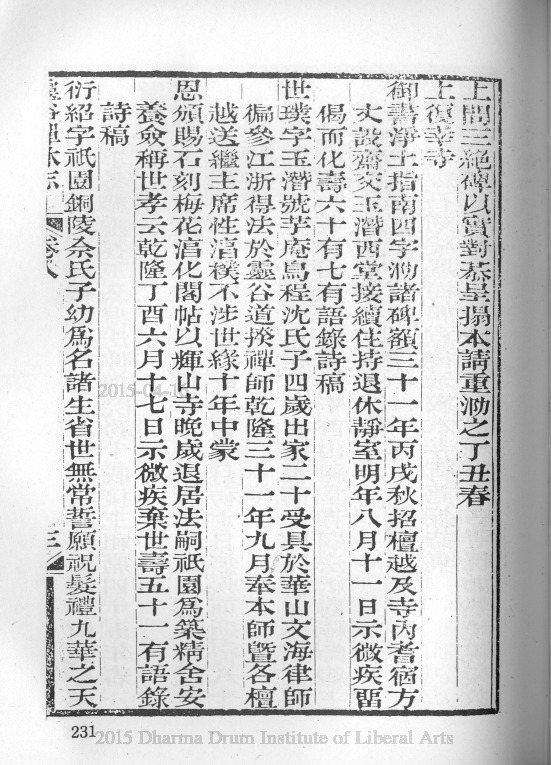 上問三絕碑以實對恭呈搨本請重泐之丁丑春
上復幸寺
御書淨土指南四字泐諸碑額三十一年丙戌秋招檀越及寺內耆宿方
丈設齋交玉潛西堂接續住持退休靜室明年八月十一日示微疾留
偈而化壽六十有七有語錄詩稿
世璞字玉潛號芋庵烏程沈氏子四歲出家二十受具於華山文海律師
徧參江浙得法於靈谷道揆禪師乾隆三十一年九月奉本師曁各檀
越送繼主席性湻樸不涉世緣十年中蒙
恩頒賜石刻梅花湻化閣帖以輝山寺晚歲退居法嗣祇園爲築精舍安
養僉稱世孝云乾隆丁酉六月十七日示微疾棄世壽五十一有語錄
詩稿
衍紹字祇園銅陵佘氏子幼爲名諸生省世無常誓願祝髮禮九華之天
靈谷禪林志 卷八 三
231
2015-04-16
2015 Dharma Drum Institute of Liberal Arts